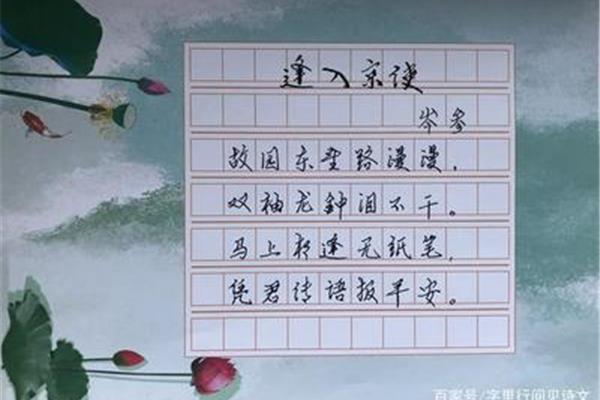 逢入京使
岑参
故园东望路漫漫，
双袖龙钟泪不干。
马上相逢无纸笔，
凭君传语报平安。
百家号/字里行间见诗文